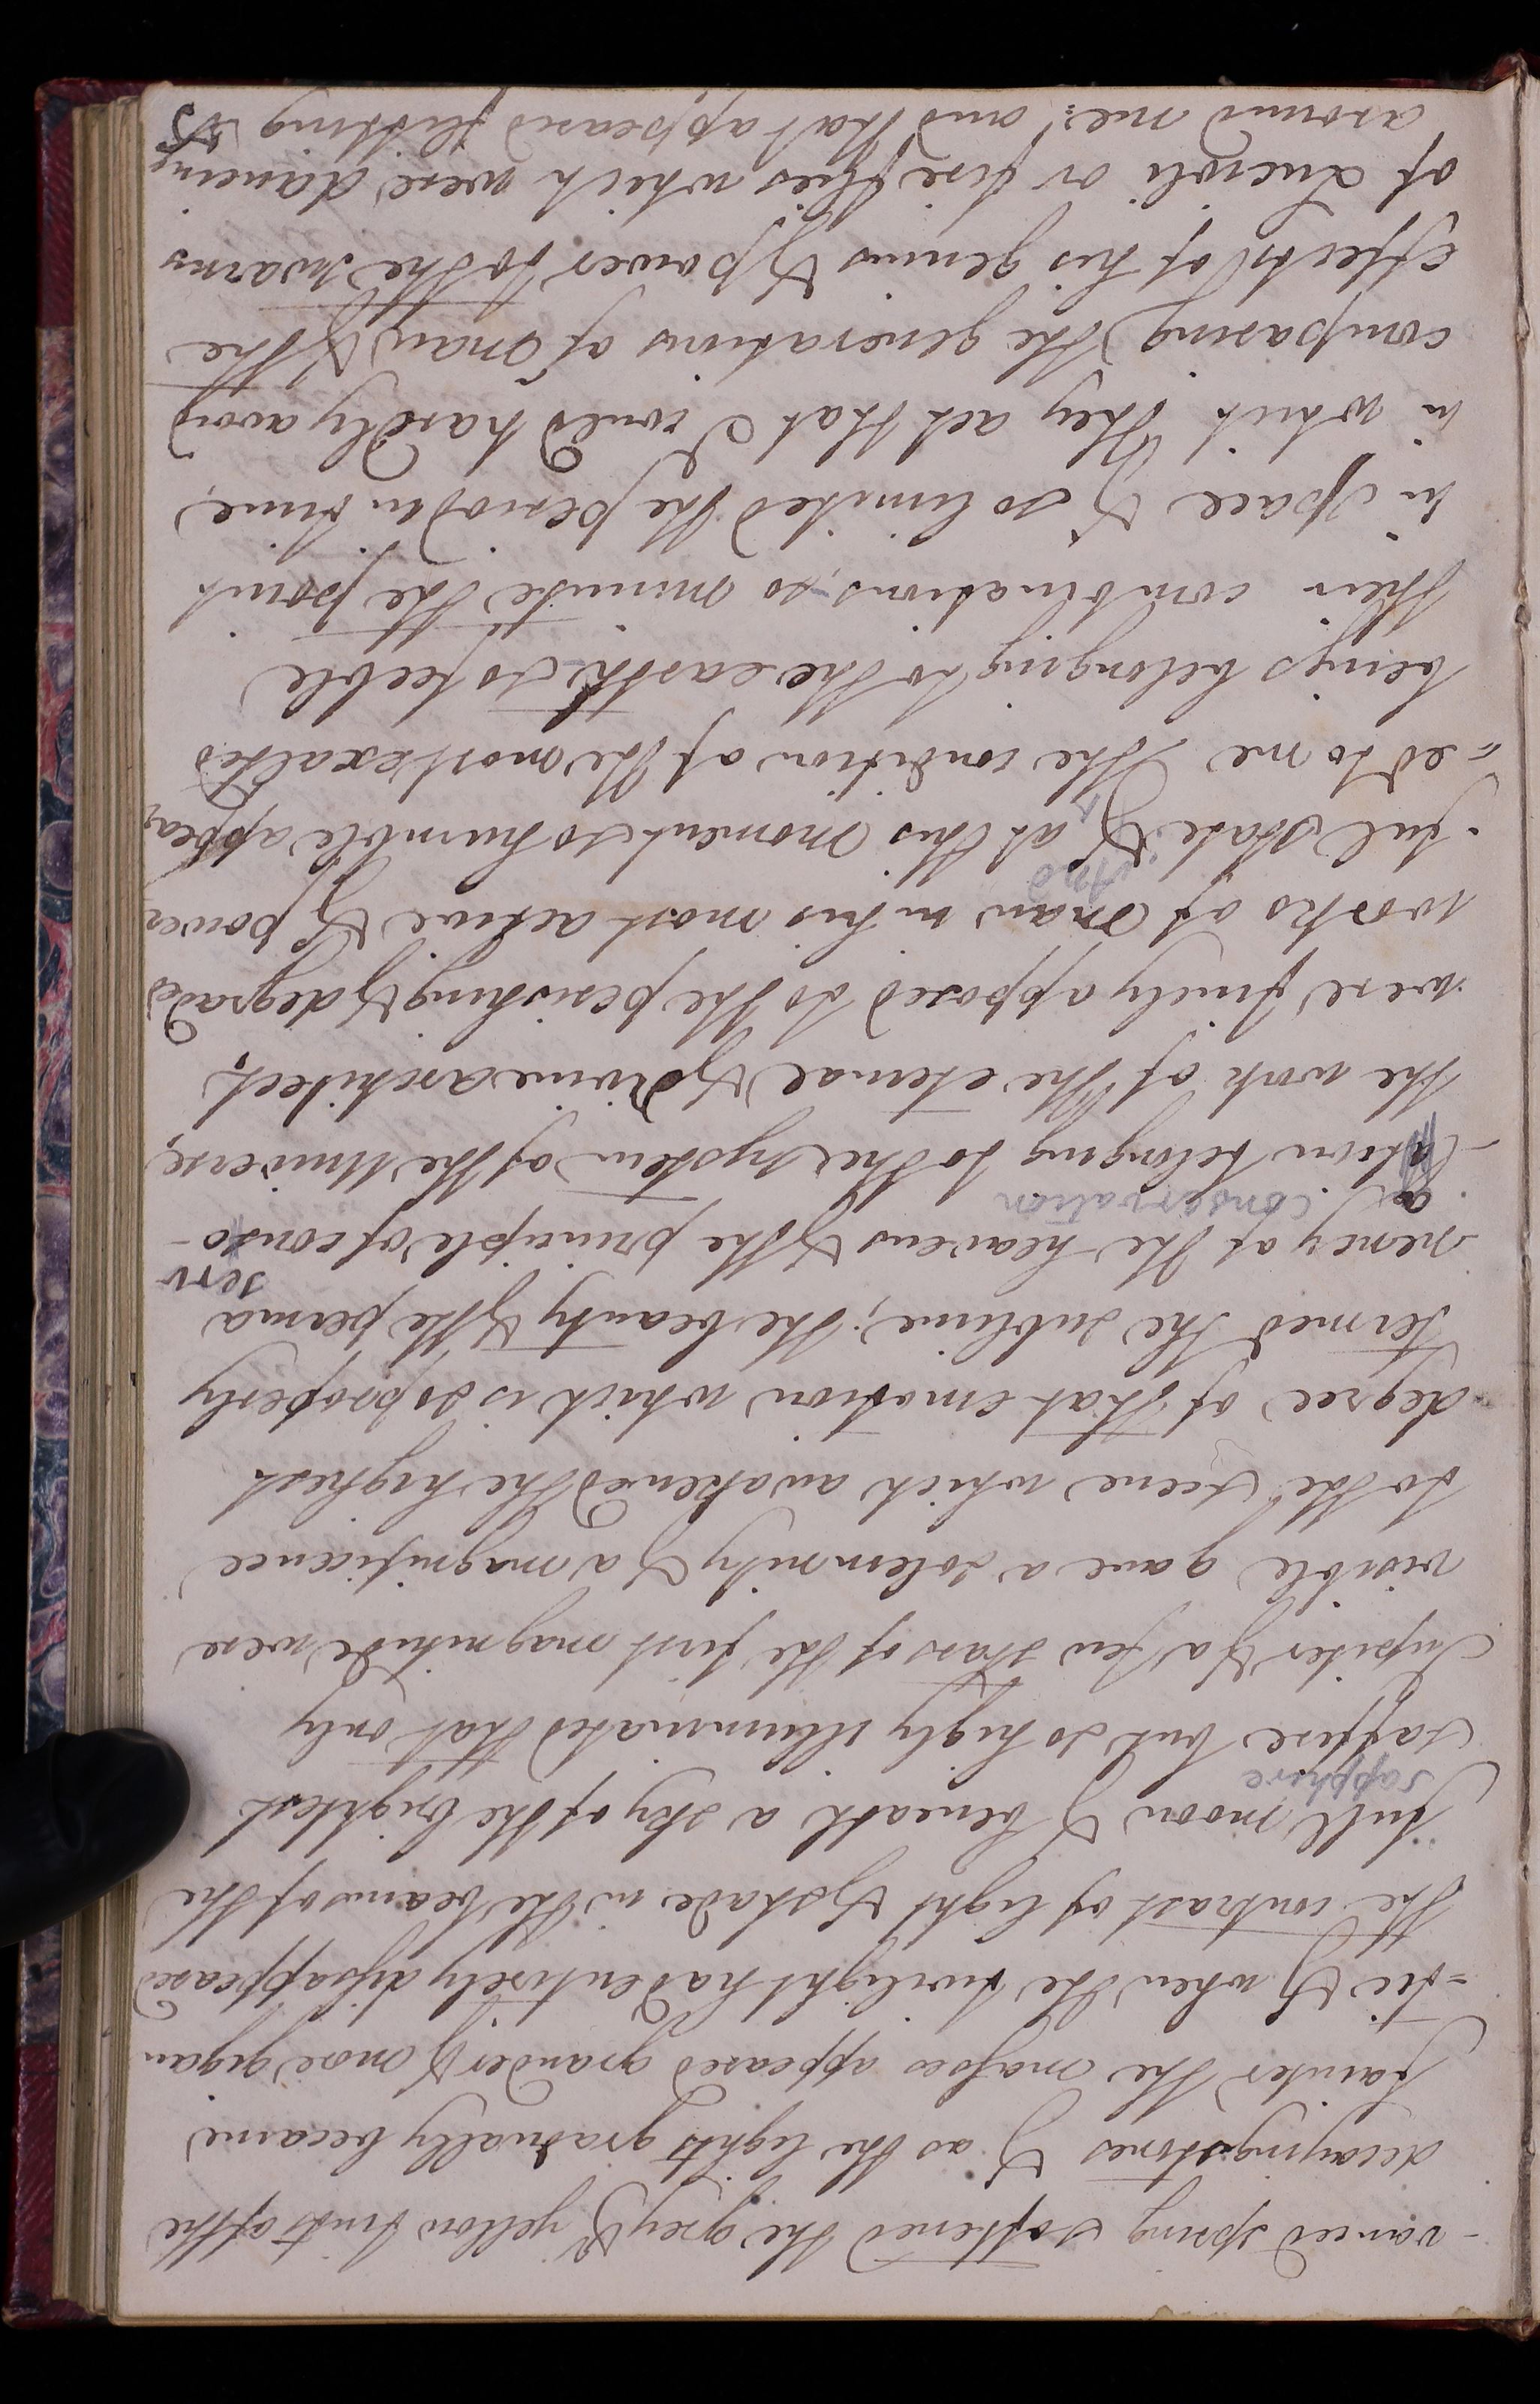 -vanced spring softened the grey & yellow tints of the
decaying stones & as the lights gradually became
fainter the masses appeared grander & more gigan
=tic & when the twilight had entirely disappeared
the contrast of light & shade in the beams of the
full moon & beneath a sky of the brightest
sapphire
saffire but so higly illuminated that only
Jupiter & a few stars of the first magnitude were
visible gave a solemnity & a magnificence
to the scene which awakened the highest
degree of that emotion which is so properly
termed the sublime; the beauty & the perma
serv
-nency of the heavens & the principle of conso-
a conservation
-lation belonging to the system of the Universe,
the work of the eternal & divine architect,
were finely opposed to the perishing & degraded
works of Man in his most active & power
And
-ful state & at this moment so humble appear
=ed to me the condition of the most exalted
beings belonging to the earth - so feeble
their combinations, so minute the point
in space & so limited the period in time,
in which they act that I could hardly avoid
comparing the generations of Man & the
effects of his genius & power to the swarms
of Lucioli or fire flies which were dancing
around me; and that appeared flitting &